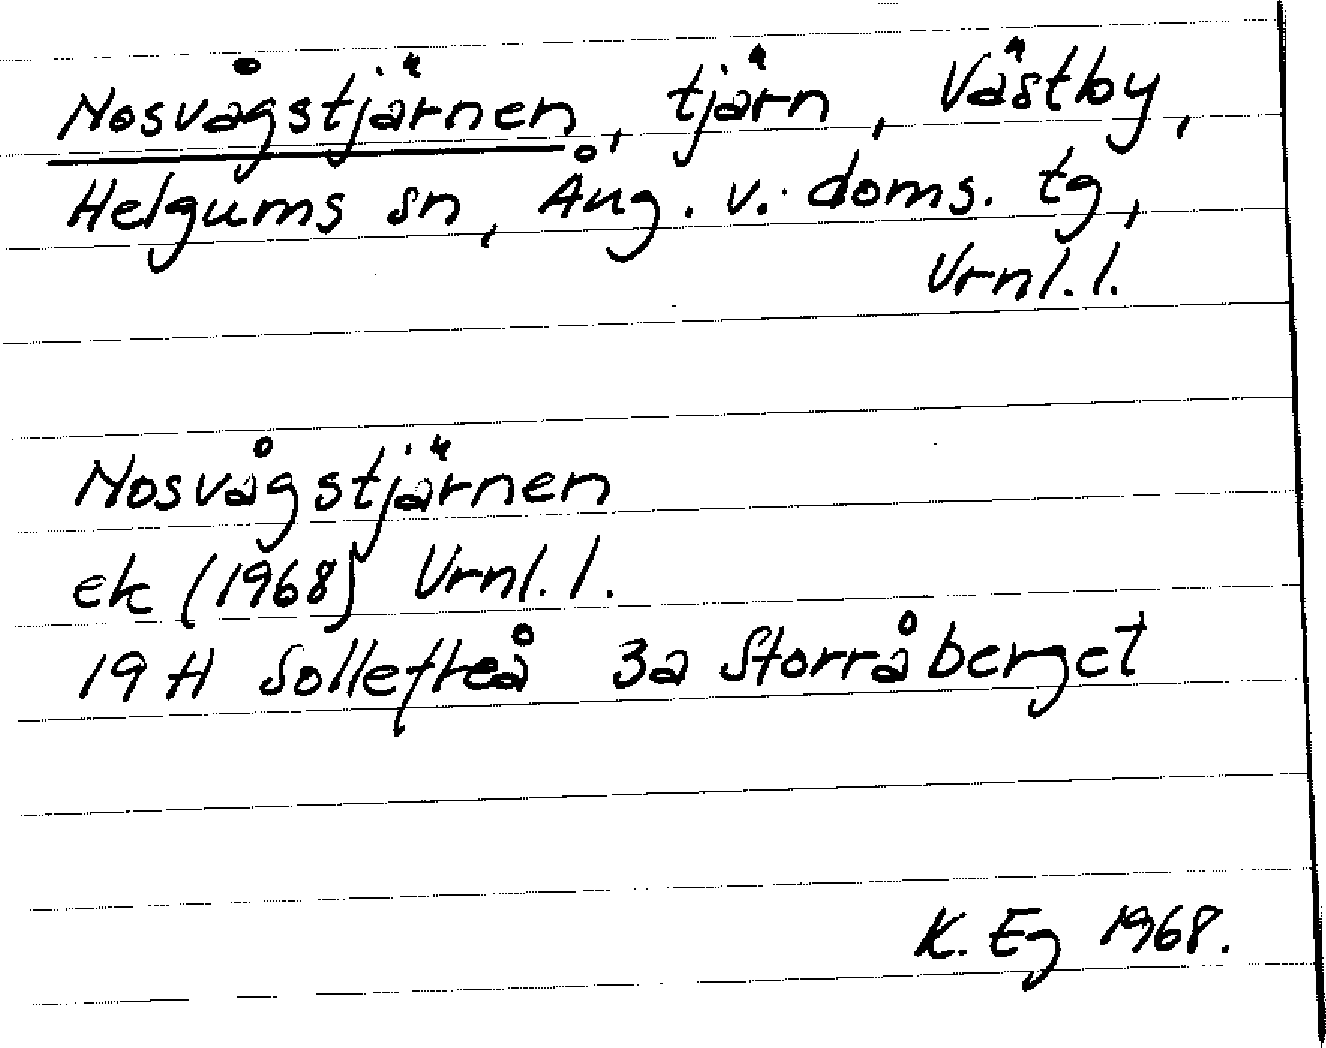 Nosvågstjärnen, tjärn, Västby,
Helgums sn, Ång. v. doms. tg,
Vrnl. l.
Nosvågstjärnen
ek (1968) Vrnl. l.
19 H Sollefteå 3a Storråberget
K. Eg 1968.